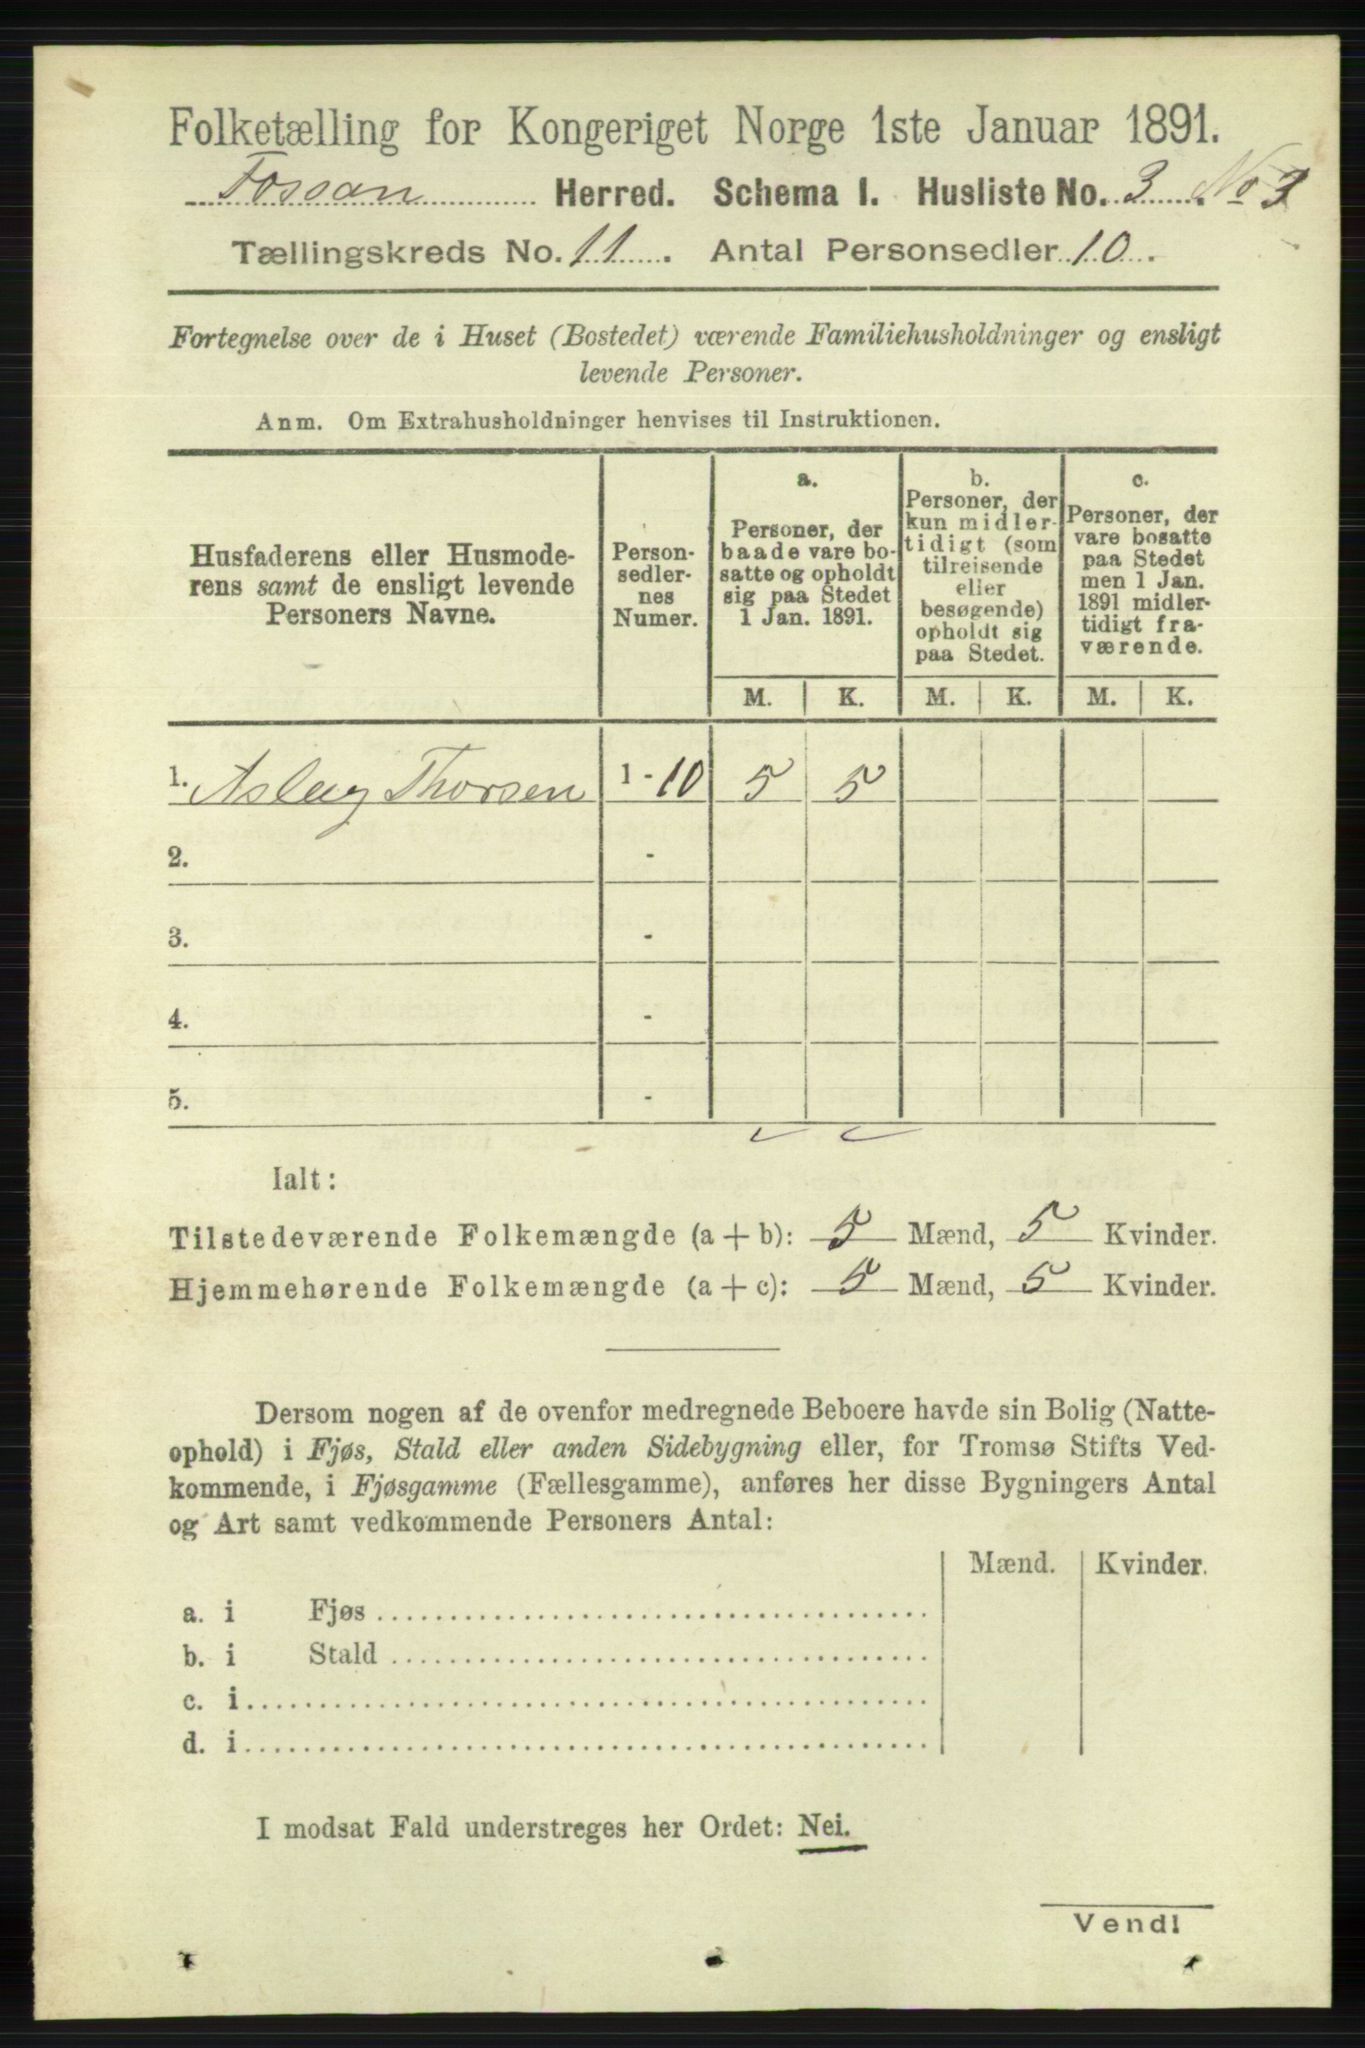 Folketælling for Kongeriget Norge 1ste Januar 1891.
Fossan Herred. Schema I. Husliste No. 3. No 3
Tællingskreds No. 11. Antal Personsedler 10.
Fortegnelse over de i Huset (Bostedet) værende Familiehusholdninger og ensligt
levende Personer.
Anm. Om Extrahusholdninger henvises til Instruktionen.
Husfaderens eller Husmode-
rens samt de ensligt levende
Personers Navne.
Person-
sedler-
nes
Numer.
a.
Personer, der
baade vare bo-
satte og opholdt
sig paa Stedet
1 Jan. 1891.
b.
Personer, der
kun midler-
tidigt (som
tilreisende
eller
besøgende)
opholdt sig
paa Stedet.
c.
Personer, der
vare bosatte
paa Stedet
men 1 Jan.
1891 midler-
tidigt fra-
værende.
M. K. M. K. M. K.
1. Aslag Thorsen 1 - 10 5 5
2. -
3. -
4. -
5. -
Ialt:
Tilstedeværende Folkemængde (a + b): 5 Mænd, 5 Kvinder.
Hjemmehørende Folkemængde (a + c): 5 Mænd, 5 Kvinder.
Dersom nogen af de ovenfor medregnede Beboere havde sin Bolig (Natte-
ophold) i Fjøs, Stald eller anden Sidebygning eller, for Tromsø Stifts Ved-
kommende, i Fjøsgamme (Fællesgamme), anføres her disse Bygningers Antal
og Art samt vedkommende Personers Antal:
Mænd. Kvinder.
a. i Fjøs
b. i Stald
c. i
d. i
I modsat Fald understreges her Ordet: Nei.
Vend!